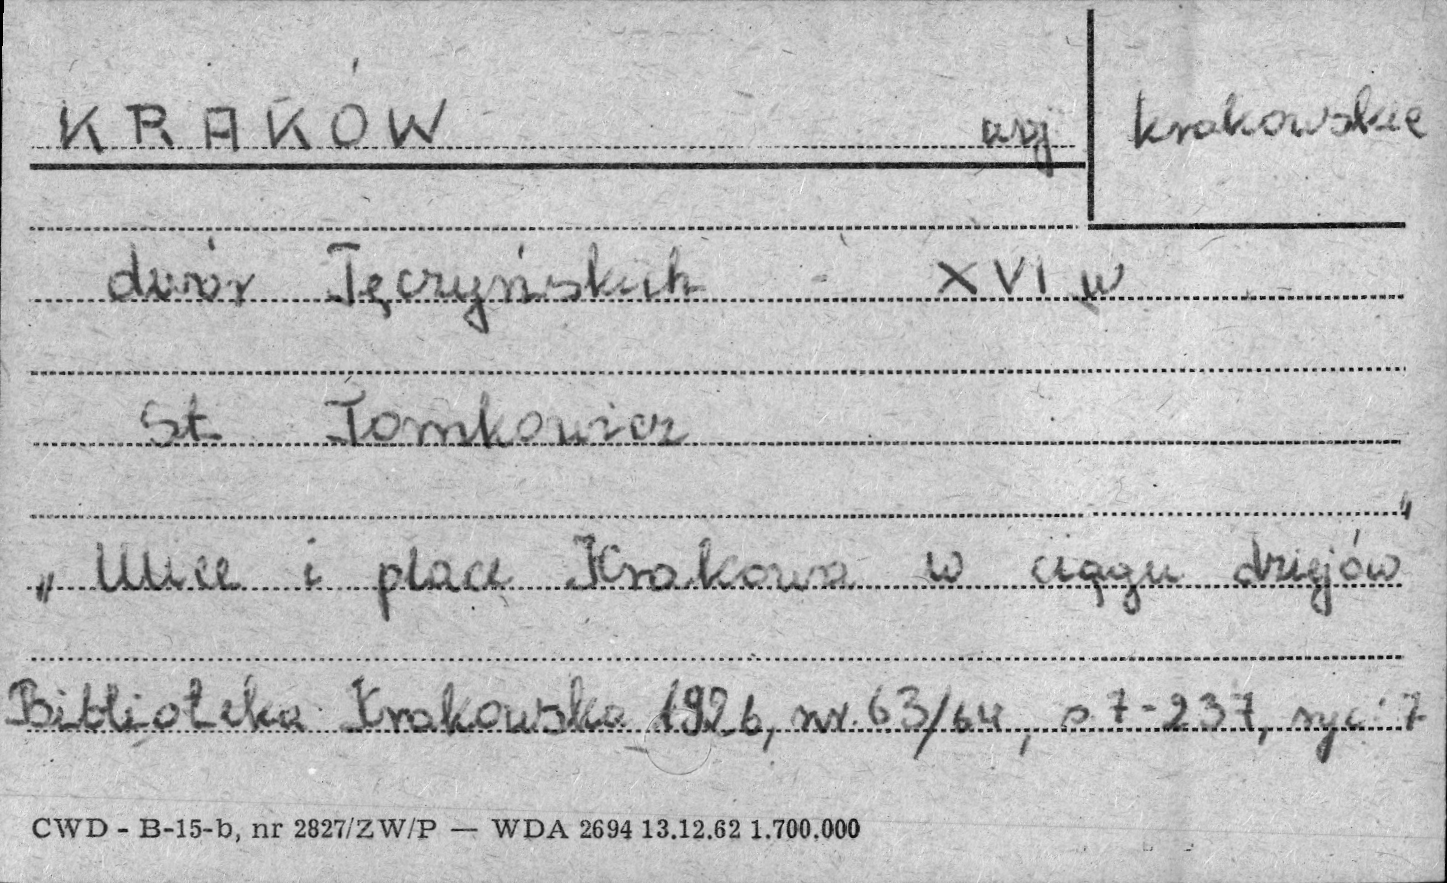 KRAKÓW krakowskie
dwór Tęczyńskich XVI w
St. Tomkowicz
„Ulice i place Krakowa w ciągu dziejów"
Biblioteka Krakowska 1926, nr. 63/64, s 7-237, ryc. 7
CWD - B-15-b, nr 2827/ZW/P — WDA 2694 13.12.62 1.700.000